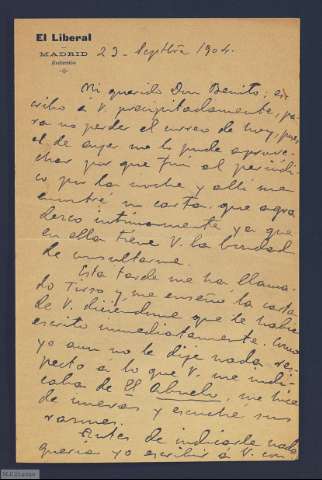 El Liberal
MADRID
Redacción
23- Septbre 1904.
Mi querido Don Benito: es-
cribo á V. precipitadamente, pa-
ra no perder el correo de hoy, pues
el de ayer no lo pude aprove-
char por que fuí al periódi-
co por la noche y allí me
encontré su carta, que agra-
dezco íntimamente ya que
en ella tiene V. la bondad
de consultarme.
Esta tarde me ha llama-
do Tirso y me enseñó la carta
de V. diciéndome que le había
escrito inmediatamente. Como
yo aun no le dije nada res-
pecto á lo que V. me indi-
caba de El Abuelo, me hice
de nuevas y escuché sus
razones.
Antes de indicarle nada
quería yo escribir á V. con